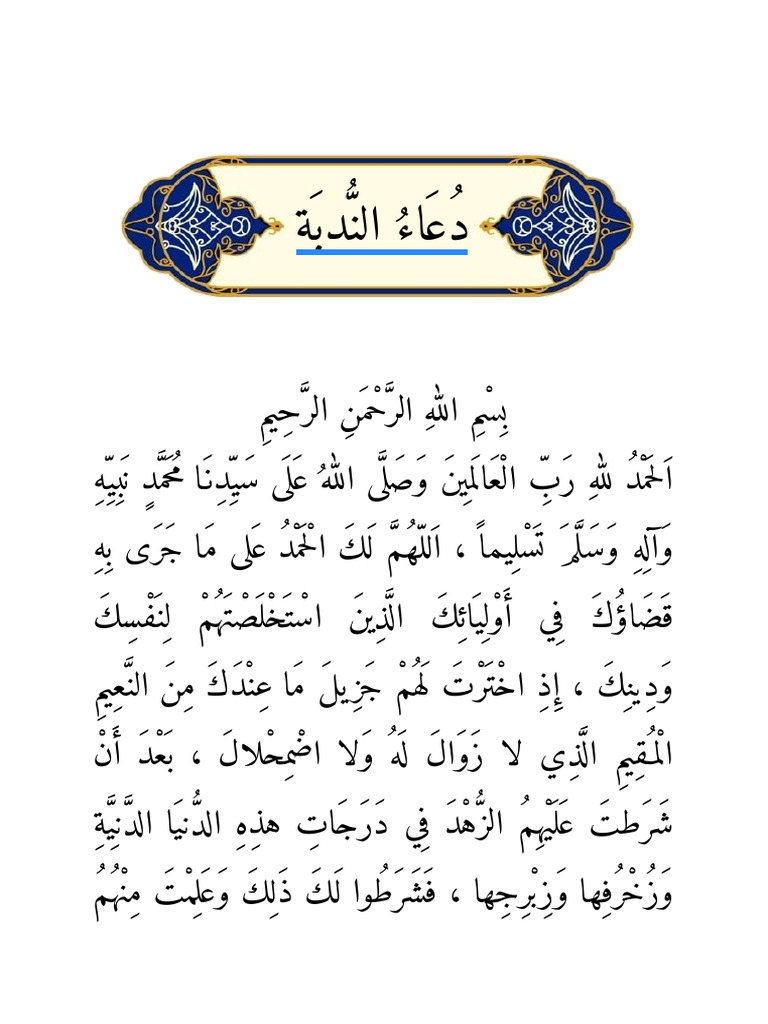 دُعَاءُ النُّدبَة
بِسْمِ اللهِ الرَّحْمَنِ الرَّحِيمِ
اَلحَمْدُ للهِ رَبِّ الْعَالَمِينَ وَصَلَّى اللهُ عَلَى سَيِّدِنَا مُحَمَّدٍ نَبِيِّهِ
وَآلِهِ وَسَلَّمَ تَسْلِيماً ، اَللّهُمَّ لَكَ الْحَمْدُ عَلى مَا جَرَى بِهِ
قَضَاؤُكَ فِي أَوْلِيَائِكَ الَّذِينَ اسْتَخْلَصْتَهُمْ لِنَفْسِكَ
وَدِينِكَ ، إِذِ اخْتَرْتَ لَهُمْ جَزِيلَ مَا عِنْدَكَ مِنَ النَّعِيمِ
الْمُقِيمِ الَّذِي لا زَوَالَ لَهُ وَلا اضْمِحْلالَ ، بَعْدَ أَنْ
شَرَطتَ عَلَيْهِمُ الزُّهْدَ فِي دَرَجَاتِ هذِهِ الدُّنيَا الدَّنِيَّةِ
وَزُخْرُفِها وَزِبْرِجِها ، فَشَرَطُوا لَكَ ذَلِكَ وَعَلِمْتَ مِنْهُمُ